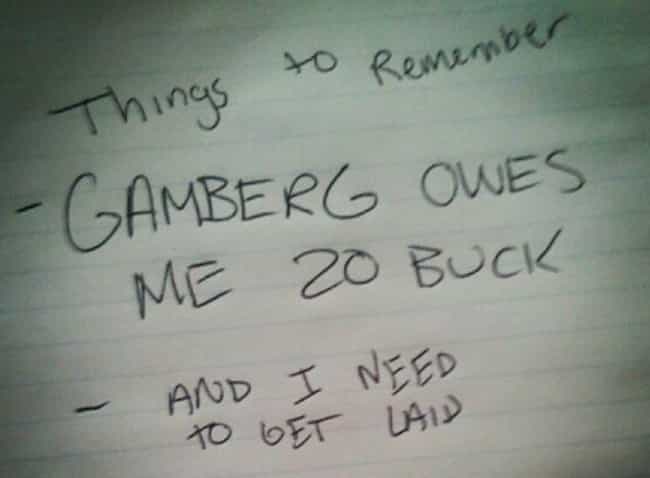 Things to Remember
- GAMBERG OWES
ME 20 BUCK
- AND I NEED
to GET LAID